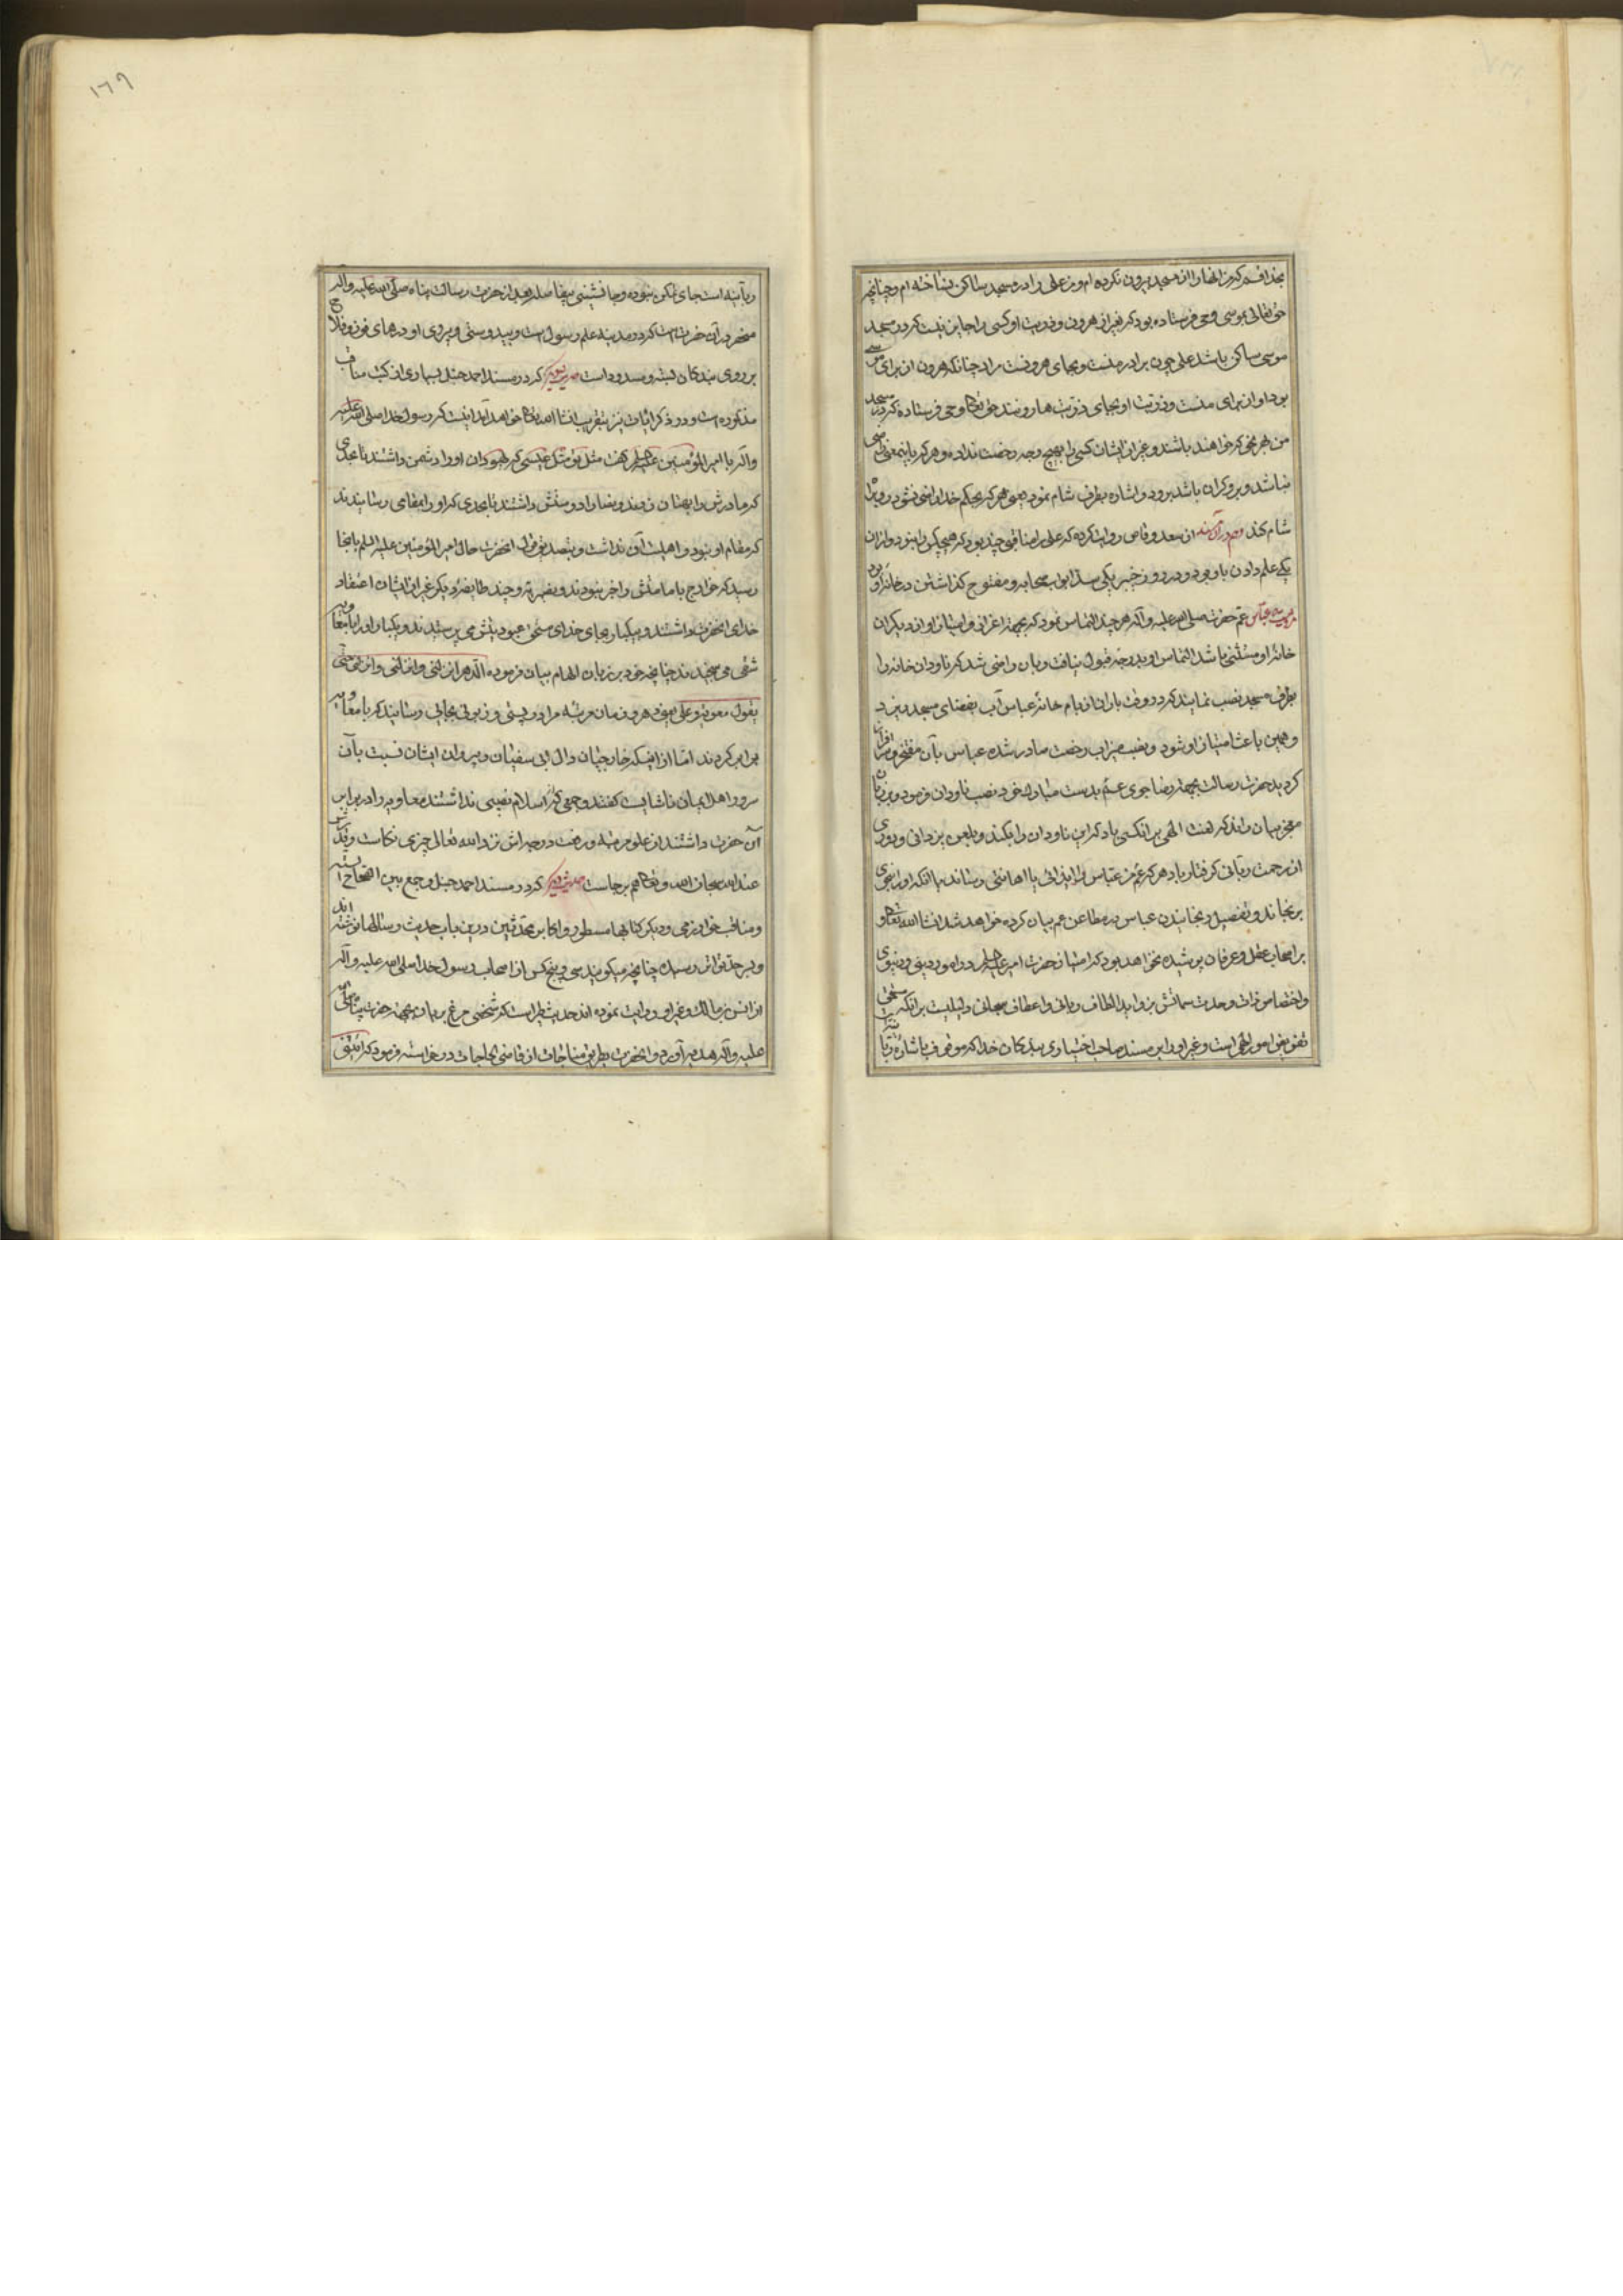 بخدا قسم که من انها را از مسجد بیرون نکرده ام و من علی را در مسجد ساکن نساخته ام و چنانچه
حق تعالی بموسی وحی فرستاده بود که بغیر از هرون و ذریت او کسی را جایز نیست که در مسجد
موسی ساکن باشد علی چون برادر منست و بجای هرونست مرا و چنانکه هرون از برای موسی
بود او از برای منست و ذریت او بجای ذریت هارونند حق تعالی وحی فرستاده که در مسجد
من هر نحو که خواهند باشند و غیر از ایشان کسی را بهیچ وجه رخصت نداده و هر که باینمعنی راضی
نباشد و برو گران باشد برود و اشاره بطرف شام نمود یعنی هر که بحکم خدا راضی نشود رو براه
شام کند از سعد وقاص روایت کرده که علی را مناقبی چند بود که هیچکس را نبود و از ان
یکی علم دادن باو بود در روز خیبر یکی سد ابواب صحابه و مفتوح گذاشتن در خانه او بود
عباس عم حضرت صلی الله علیه و آله هر چند التماس نمود که بجهة اعزاز و امتیاز او از دیگران
خانه او مستثنی باشد التماس او بدرجه قبول نیافت و بان راضی شد که ناودان خانه را
بطرف مسجد نصب نمایند که در وقت باران از بام خانه عباس آب بفضای مسجد ریزد
و همین باعث امتیاز او شود و نصب میزاب رخصت صادر شده عباس بآن مفتخر و سرافراز
کردید حضرت رسالت بجهة رضا جوی عم بدست مبارک خود نصب ناودان فرمود و بر زبان
معجز بیان راند که لعنت الهی بر انکسی باد که این ناودان را بکند و بلعن یزدانی و دوری
از رحمت ربانی گرفتار باد هر که عم من عباس را ایذائی یا اهانتی رساند یا انکه او را بنحوی
برنجاند و تفصیل رنجانیدن عباس در مطاعن عمر بیان کرده خواهد شد انشا الله تعالی و
بر اصحاب عقل و عرفان پوشیده نخواهد بود که امتیاز حضرت امیر علیه السلم در امور دینی و دنیوی
و اختصاص ذات وحدت سماتش بزواید الطاف ربانی و اعطاف سبحانی دلیلیست بر انکه مستحق
تفویض امور الهی است و غیر او را بر مسند صاحب اختیاری بندگان خدا که موقوف باشاره
ربانیه است جای تمکن نبوده و جانشینی بیفاصله بعد از حضرت رسالت پناه صلی الله علیه و آله
منحصر در آن حضرت است که در مدینه علم رسول است و بی دوستی و پیروی او درهای فوز و فلاح
بر روی بندگان بسته و مسدود است حدیث نهم که در مسند احمد حنبل و بسیاری از کتب مناقب
مذکوره است و در ذکر ایات نیز بتقریب انشا الله تعالی خواهد آمد اینست که رسول خدا صلی الله علیه
و آله با امیر المؤمنین علیه السلم گفت مثل تو مثل عیسی که یهودان او را دشمن داشتند تا بحدی
که مادرش را بهتان زدند و نصارا دوستش داشتند تا بحدی که او را بمقامی رسانیدند
که مقام او نبود و اهلیت آن نداشت و بتصدیق قول انحضرت حال امیر المؤمنین علیه السلم بانجا
رسید که خوارج با مامتش راضی نبودند و نصیریه و چند طایفه دیگر غیر از ایشان اعتقاد
خدای انحضرت داشتند و بیکبار بجای خدای مستحق عبودیتش می پرستیدند و یکبار او را با معاویه
شقی می سنجیدند چنانچه خود بر زبان الهام بیان فرموده الدهر انزلنی و انزلنی حتی
یقول معویة و علی یعنی دهر و زمان مرتبه مرا در پستی و زبونی بجائی رسانید که با معاویه
برابر کردند اما از اینکه خارجیان و ال ابی سفیان و پیروان ایشان نسبت بآن
سرور اهل ایمان ناشایست گفتند و جمعی که از اسلام نصیبی نداشتند معاویه را در برابر
آن حضرت داشتند از علو مرتبه و رفعت درجه اش نزد الله تعالی چیزی نکاست
عند الله سبحان الله و تعالی هم برجاست حدیث دهم که در مسند احمد حنبل و جمع بین الصحاح السته
و مناقب خوارزمی و دیگر کتابها مسطور و اکابر محدثین درین باب حدیث و رسالها نوشته اند
و بسر حد تواتر رسیده چنانچه میگویند سی و پنج کس از اصحاب رسول خدا صلی الله علیه و آله
از انس بن مالک و غیر او روایت نموده اند حدیث طیر است که شخصی مرغ بریان بجهة حضرت
علیه و آله هدیه آورد و انحضرت بطریق مناجات از قاضی الحاجات درخواسته فرمود که